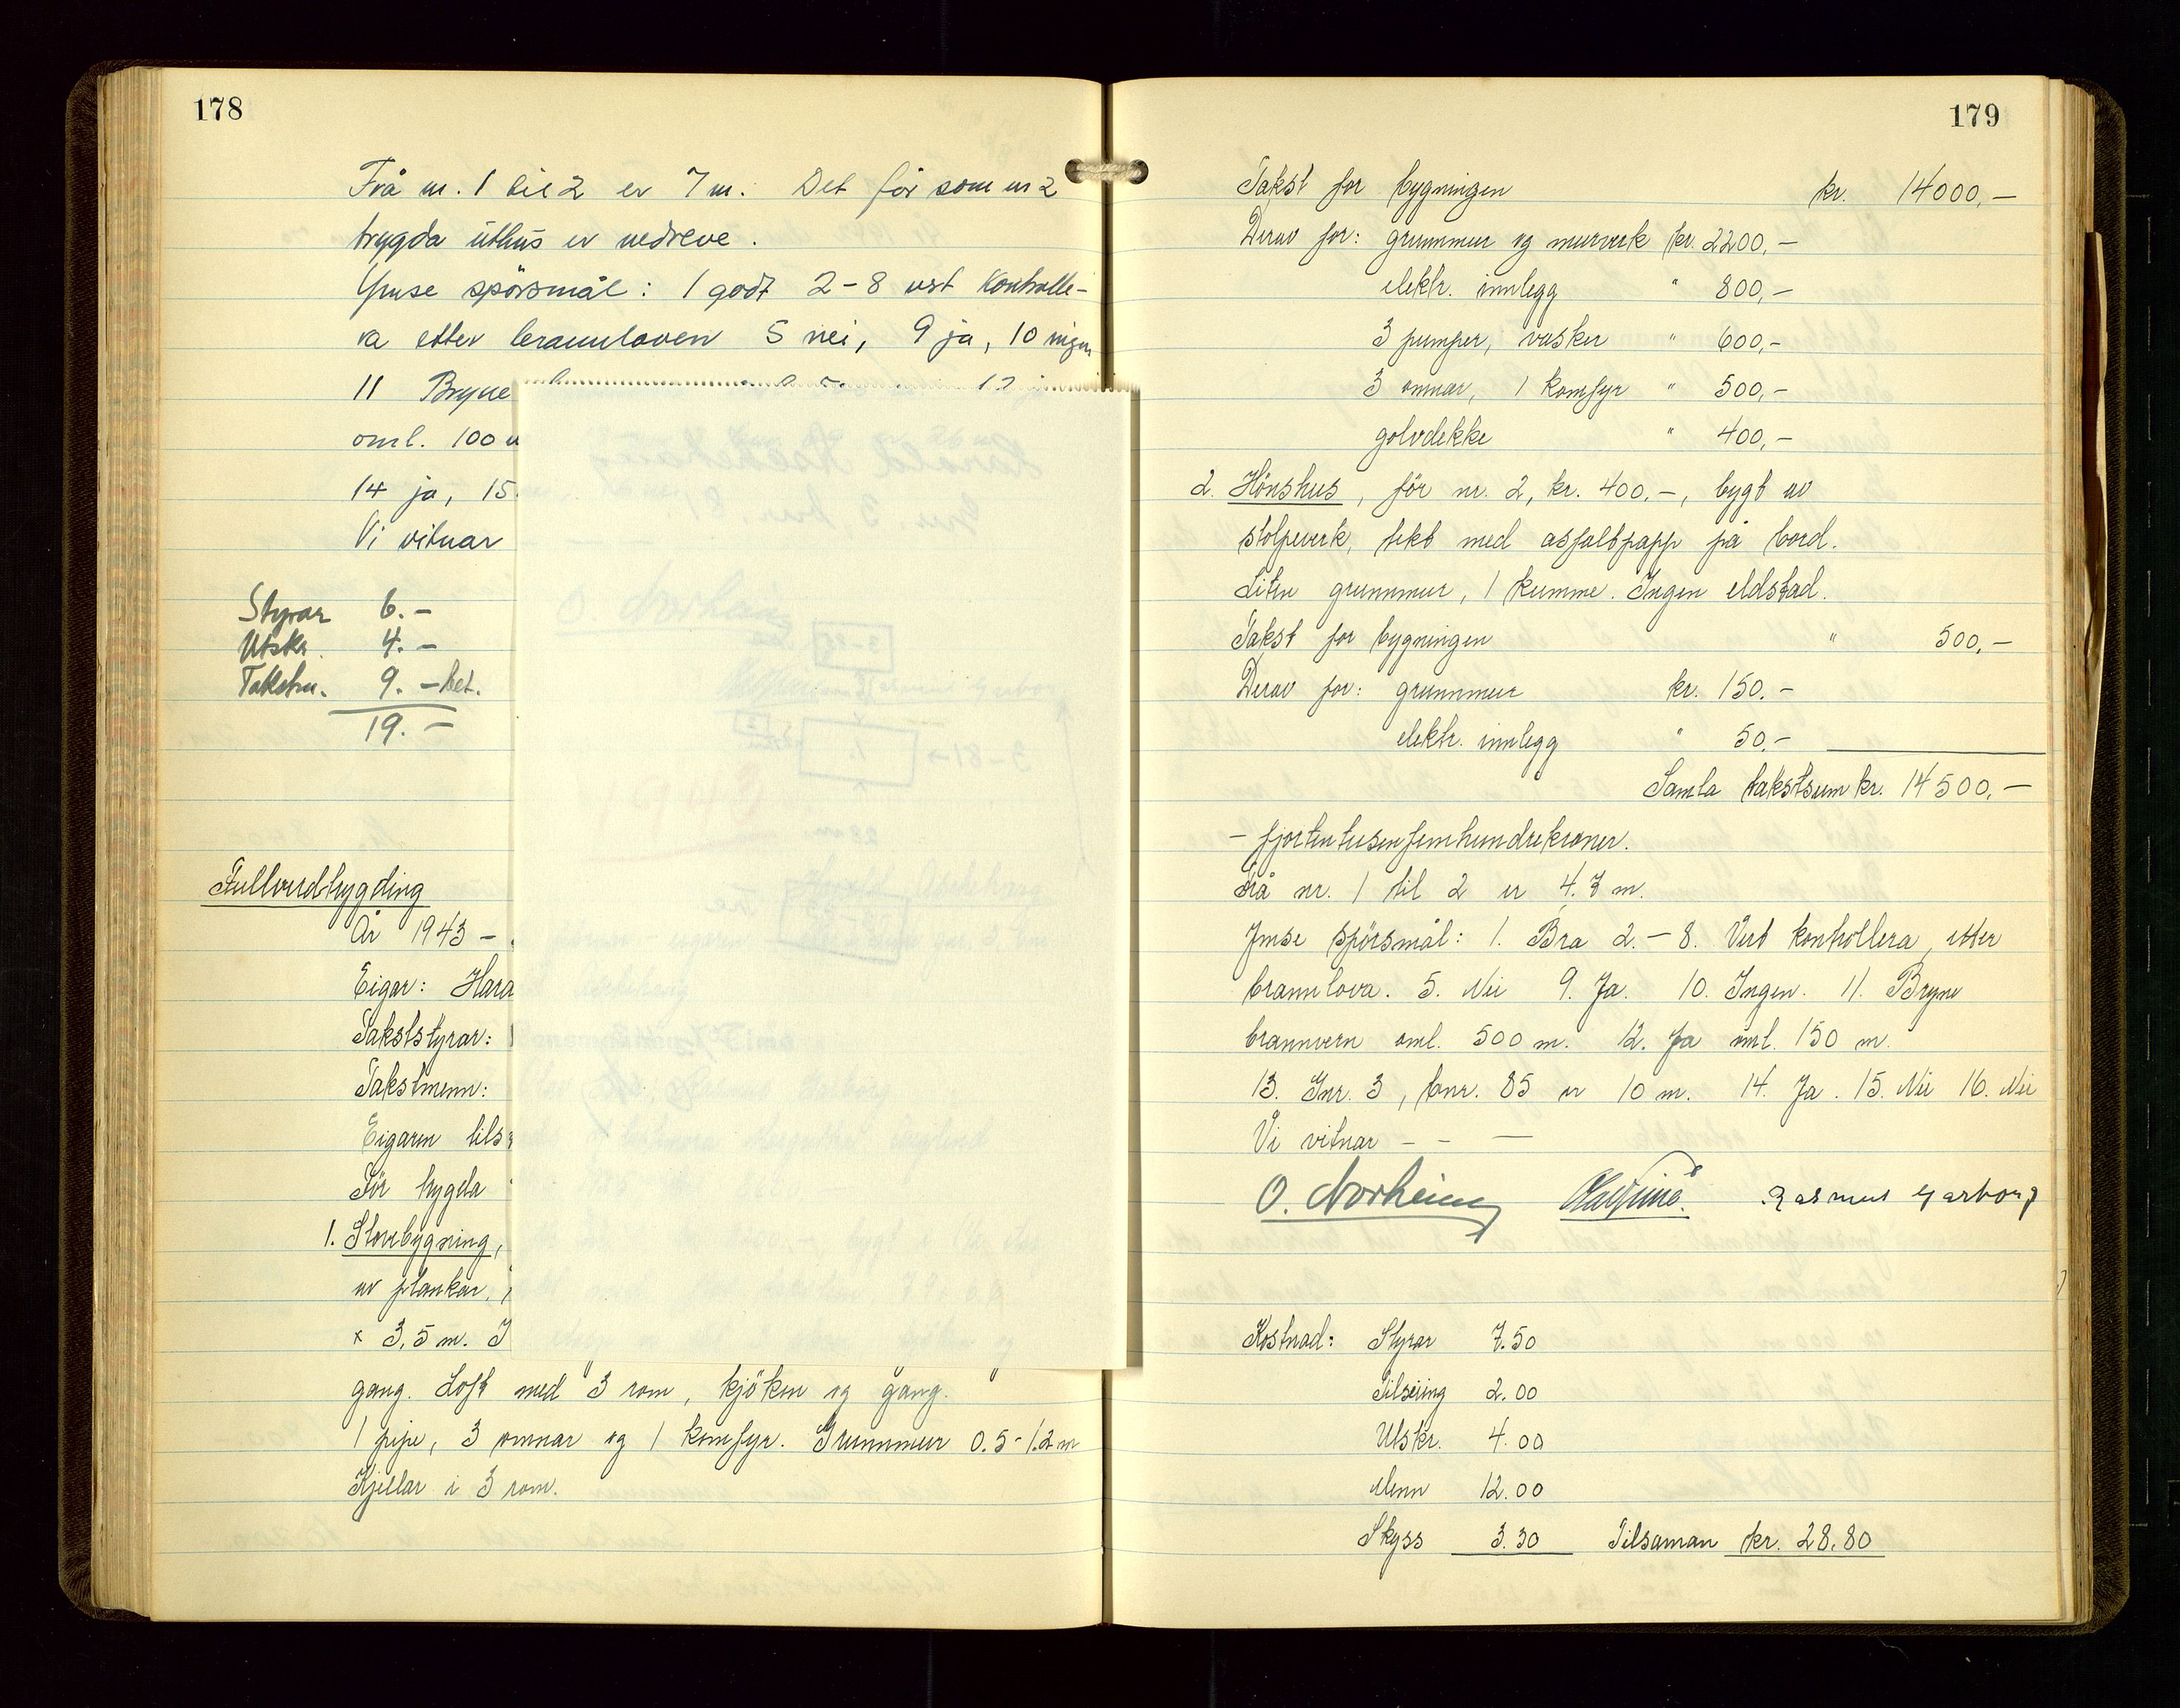 178
Frå nr. 1 til 2 er 7 m. Det för som nr 2
bygda uthus er nedreve.
Ymse spörsmål: 1 godt 2-8 vert kontrolle-
ra etter brannloven 5 nei, 9 ja, 10 ingen
11 Bryne
oml. 100 m
14 ja, 15.
Vi vitnar
Styrar 6.-
Utskr. 4.-
Takstm. 9.- bet.
19.-
Fullverdbygding
År 1943 -
Eigar: Hara
Takststyrar:
Takstmenn:
Eigaren tils
För bygda
1. Storbygning,
av plankar,
x 3,5 m. I
gang. Loft med 3 rom, kjöken og gang.
1 pipe, 3 omnar og 1 komfyr. Grunnmur 0.5-1.2 m
Kjellar i 3 rom.
179
Takst for bygningen kr. 14000,-
Derav for: grunnmur og murverk kr. 2200,-
elektr. innlegg " 800,-
3 pumper, vasker " 600,-
3 omnar, 1 komfyr " 500,-
golvdekke " 400,-
2. Hönshus, för nr. 2, kr. 400.-, bygt av
stolpeverk, tekt med asfaltpapp på bord.
Liten grunnmur, 1 kumme. Ingen eldstad.
Takst for bygningen " 500,-
Derav for: grunnmur kr. 150.-
elektr. innlegg " 50,-
Samla takstsum kr. 14500,-
- fjortentusenfemhundrekroner.
Frå nr. 1 til 2 er 4.7 m.
Ymse spörsmål: 1. Bra 2.-8. Vert kontrollera etter
brannlova. 5. Nei 9. Ja. 10. Ingen. 11. Bryne
brannvern oml. 500 m. 12. Ja oml. 150 m.
13. Gnr. 3, bnr. 85 er 10 m. 14. Ja. 15. Nei 16. Nei
Vi vitnar - - -
O. Norheim Rasmus Garborg
Kostnad: Styrar 7.50
Tilseiing 2.00
Utskr. 4.00
Menn 12.00
Skyss 3.30 Tilsaman kr. 28.80